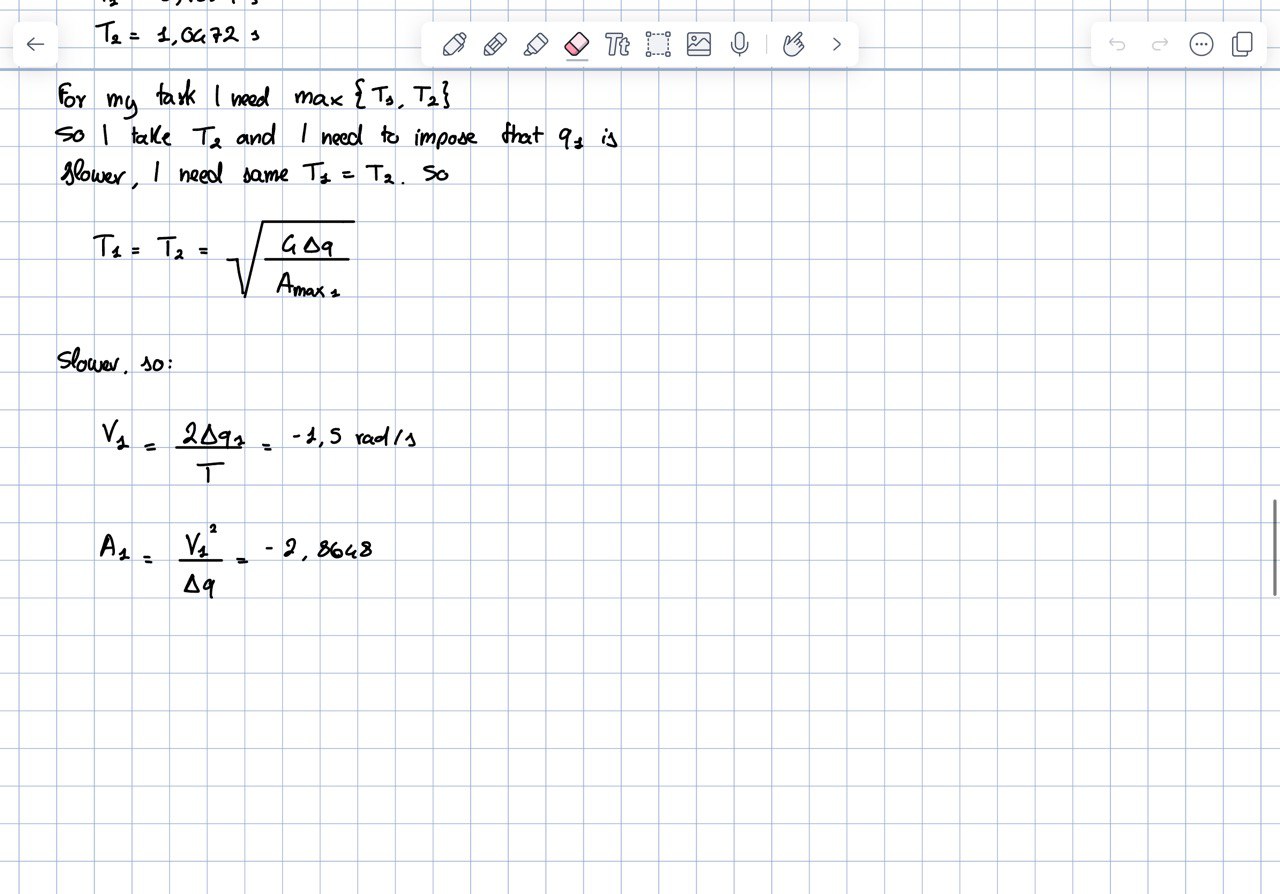 T₂ = 1,0472 s
Tt
For my task I need max {T₁, T₂}
so I take T₂ and I need to impose that q₁ is
slower, I need same T₁ = T₂. So
T₁ = T₂ = √(4Δq / Amax₁)
Slower, so:
V₁ = 2Δq₁ / T = -1,5 rad/s
A₁ = V₁² / Δq = -2,8648